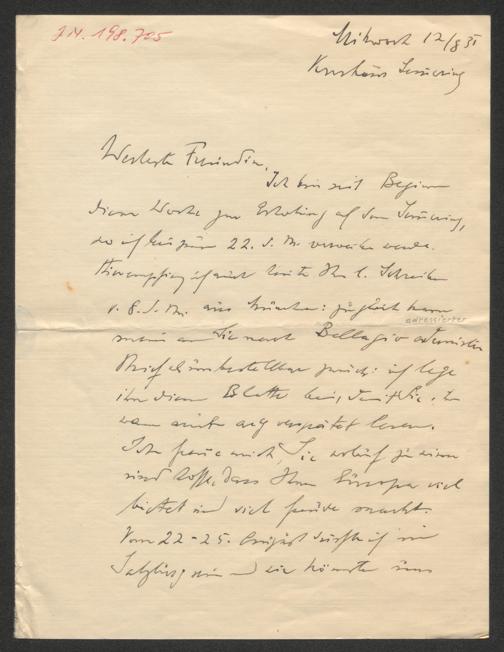 J.N. 198.705
Mittwoch 12/8 31
Kurhaus Semmering
Werteste Freundin,
Ich bin seit Beginn
dieser Woche zur Erholung auf dem Semmering,
wo ich bis zum 22. d. M. verweilen werde.
Hier empfing ich heute Ihr l. Schreiben
v. 8. d. M. aus München: zugleich kam
adressierter
mein an Sie nach Bellagio
Brief als unbestellbar zurück: ich lege
ihn diesem Blatte bei, damit Sie
wenn auch arg verspätet lesen.
Ich freue mich, Sie wohlauf zu wissen
und hoffe, dass Ihnen Europa viel
bietet und viel Freude macht.
Vom 22-25. August dürfte ich in
Salzburg sein und wir könnten uns